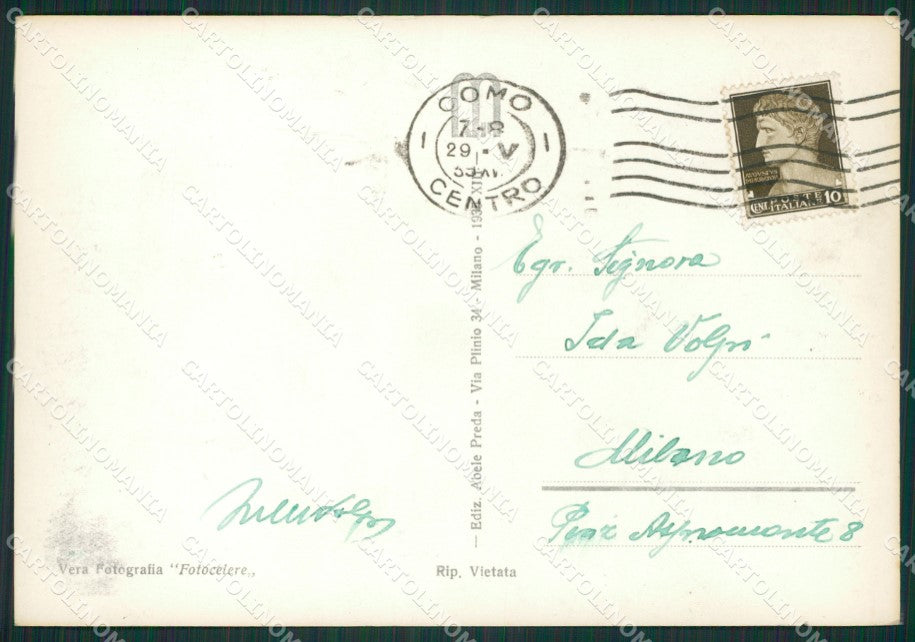 COMO
29 - V
CENTRO
POSTE
ITALIANE
CENT. 10
Egr. Signora
Ida Volpi
Milano
Piaz Aspromonte 8
— Ediz. Abele Preda - Via Plinio 34 - Milano -
Volpi
Vera Fotografia "Fotocelere„
Rip. Vietata
CARTOLINOMANIA